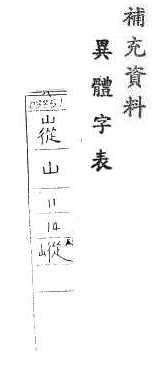 補充資料
異體字表
山從
山
11
14
嵷